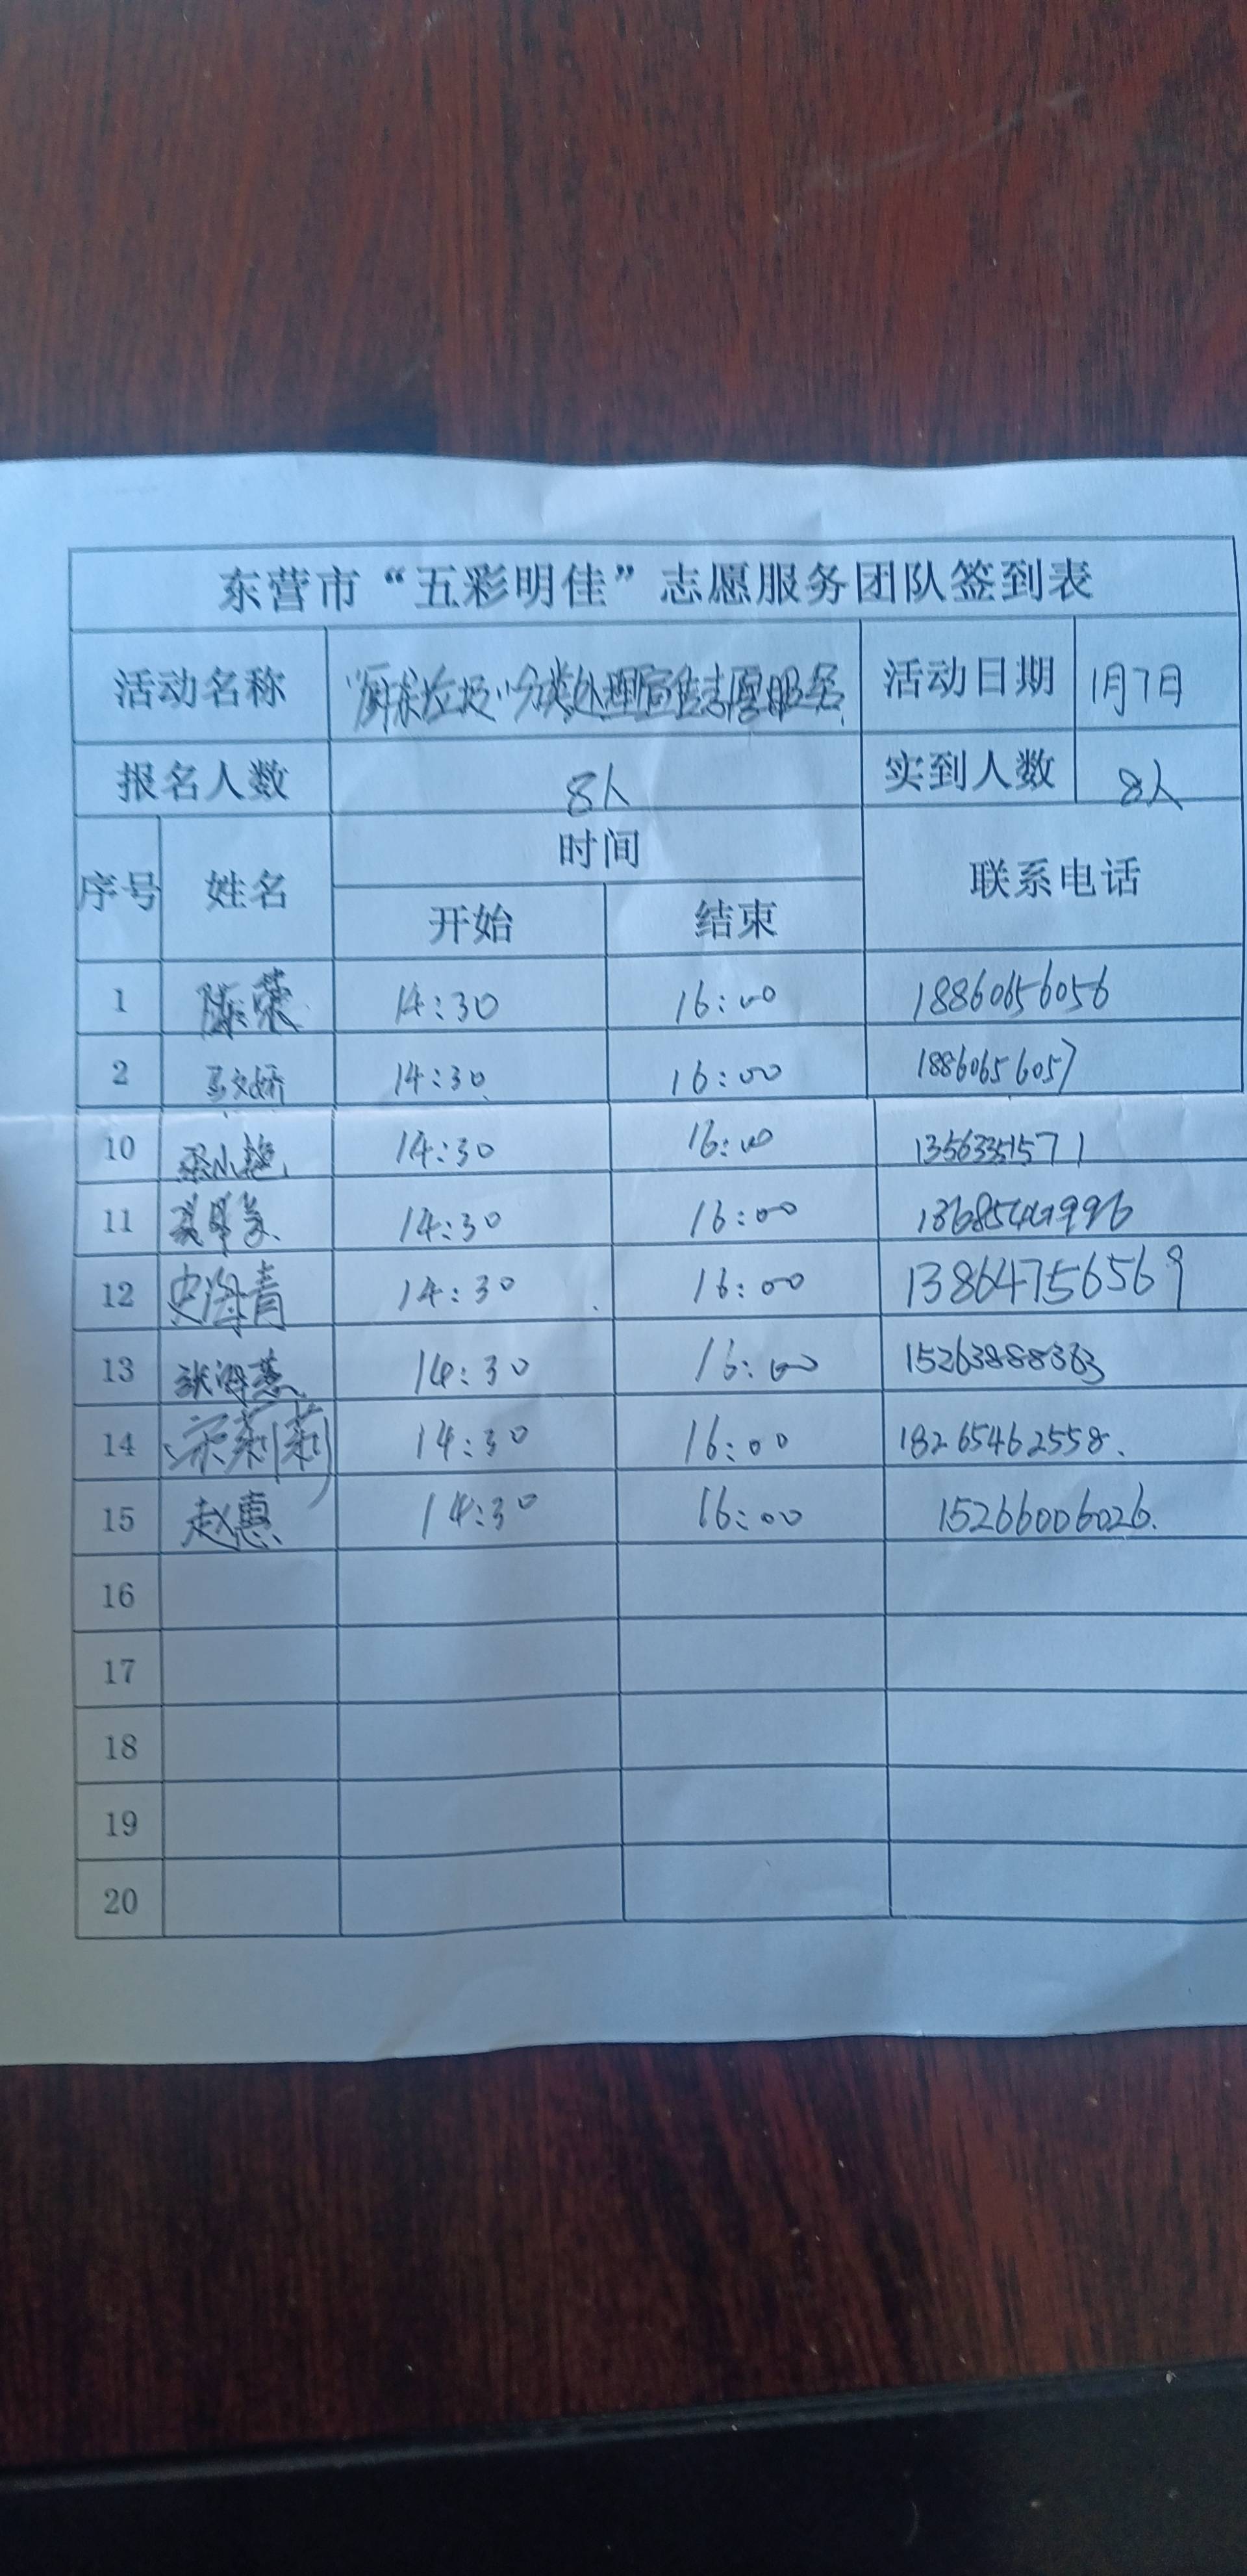 东营市“五彩明佳”志愿服务团队签到表
活动名称 “厨余垃圾”分类处理宣传志愿服务 活动日期 1月7日
报名人数 8人 实到人数 8人
序号 姓名 时间 联系电话
开始 结束
1 陈荣 14:30 16:00 18860656056
2 马文娇 14:30 16:00 18860656057
10 小艳 14:30 16:00 13563351571
11 14:30 16:00
12 史海青 14:30 16:00 13864756569
13 张海燕 14:30 16:00 15263888363
14 宋莉莉 14:30 16:00 18265462558.
15 赵惠 14:30 16:00 15266006026.
16
17
18
19
20